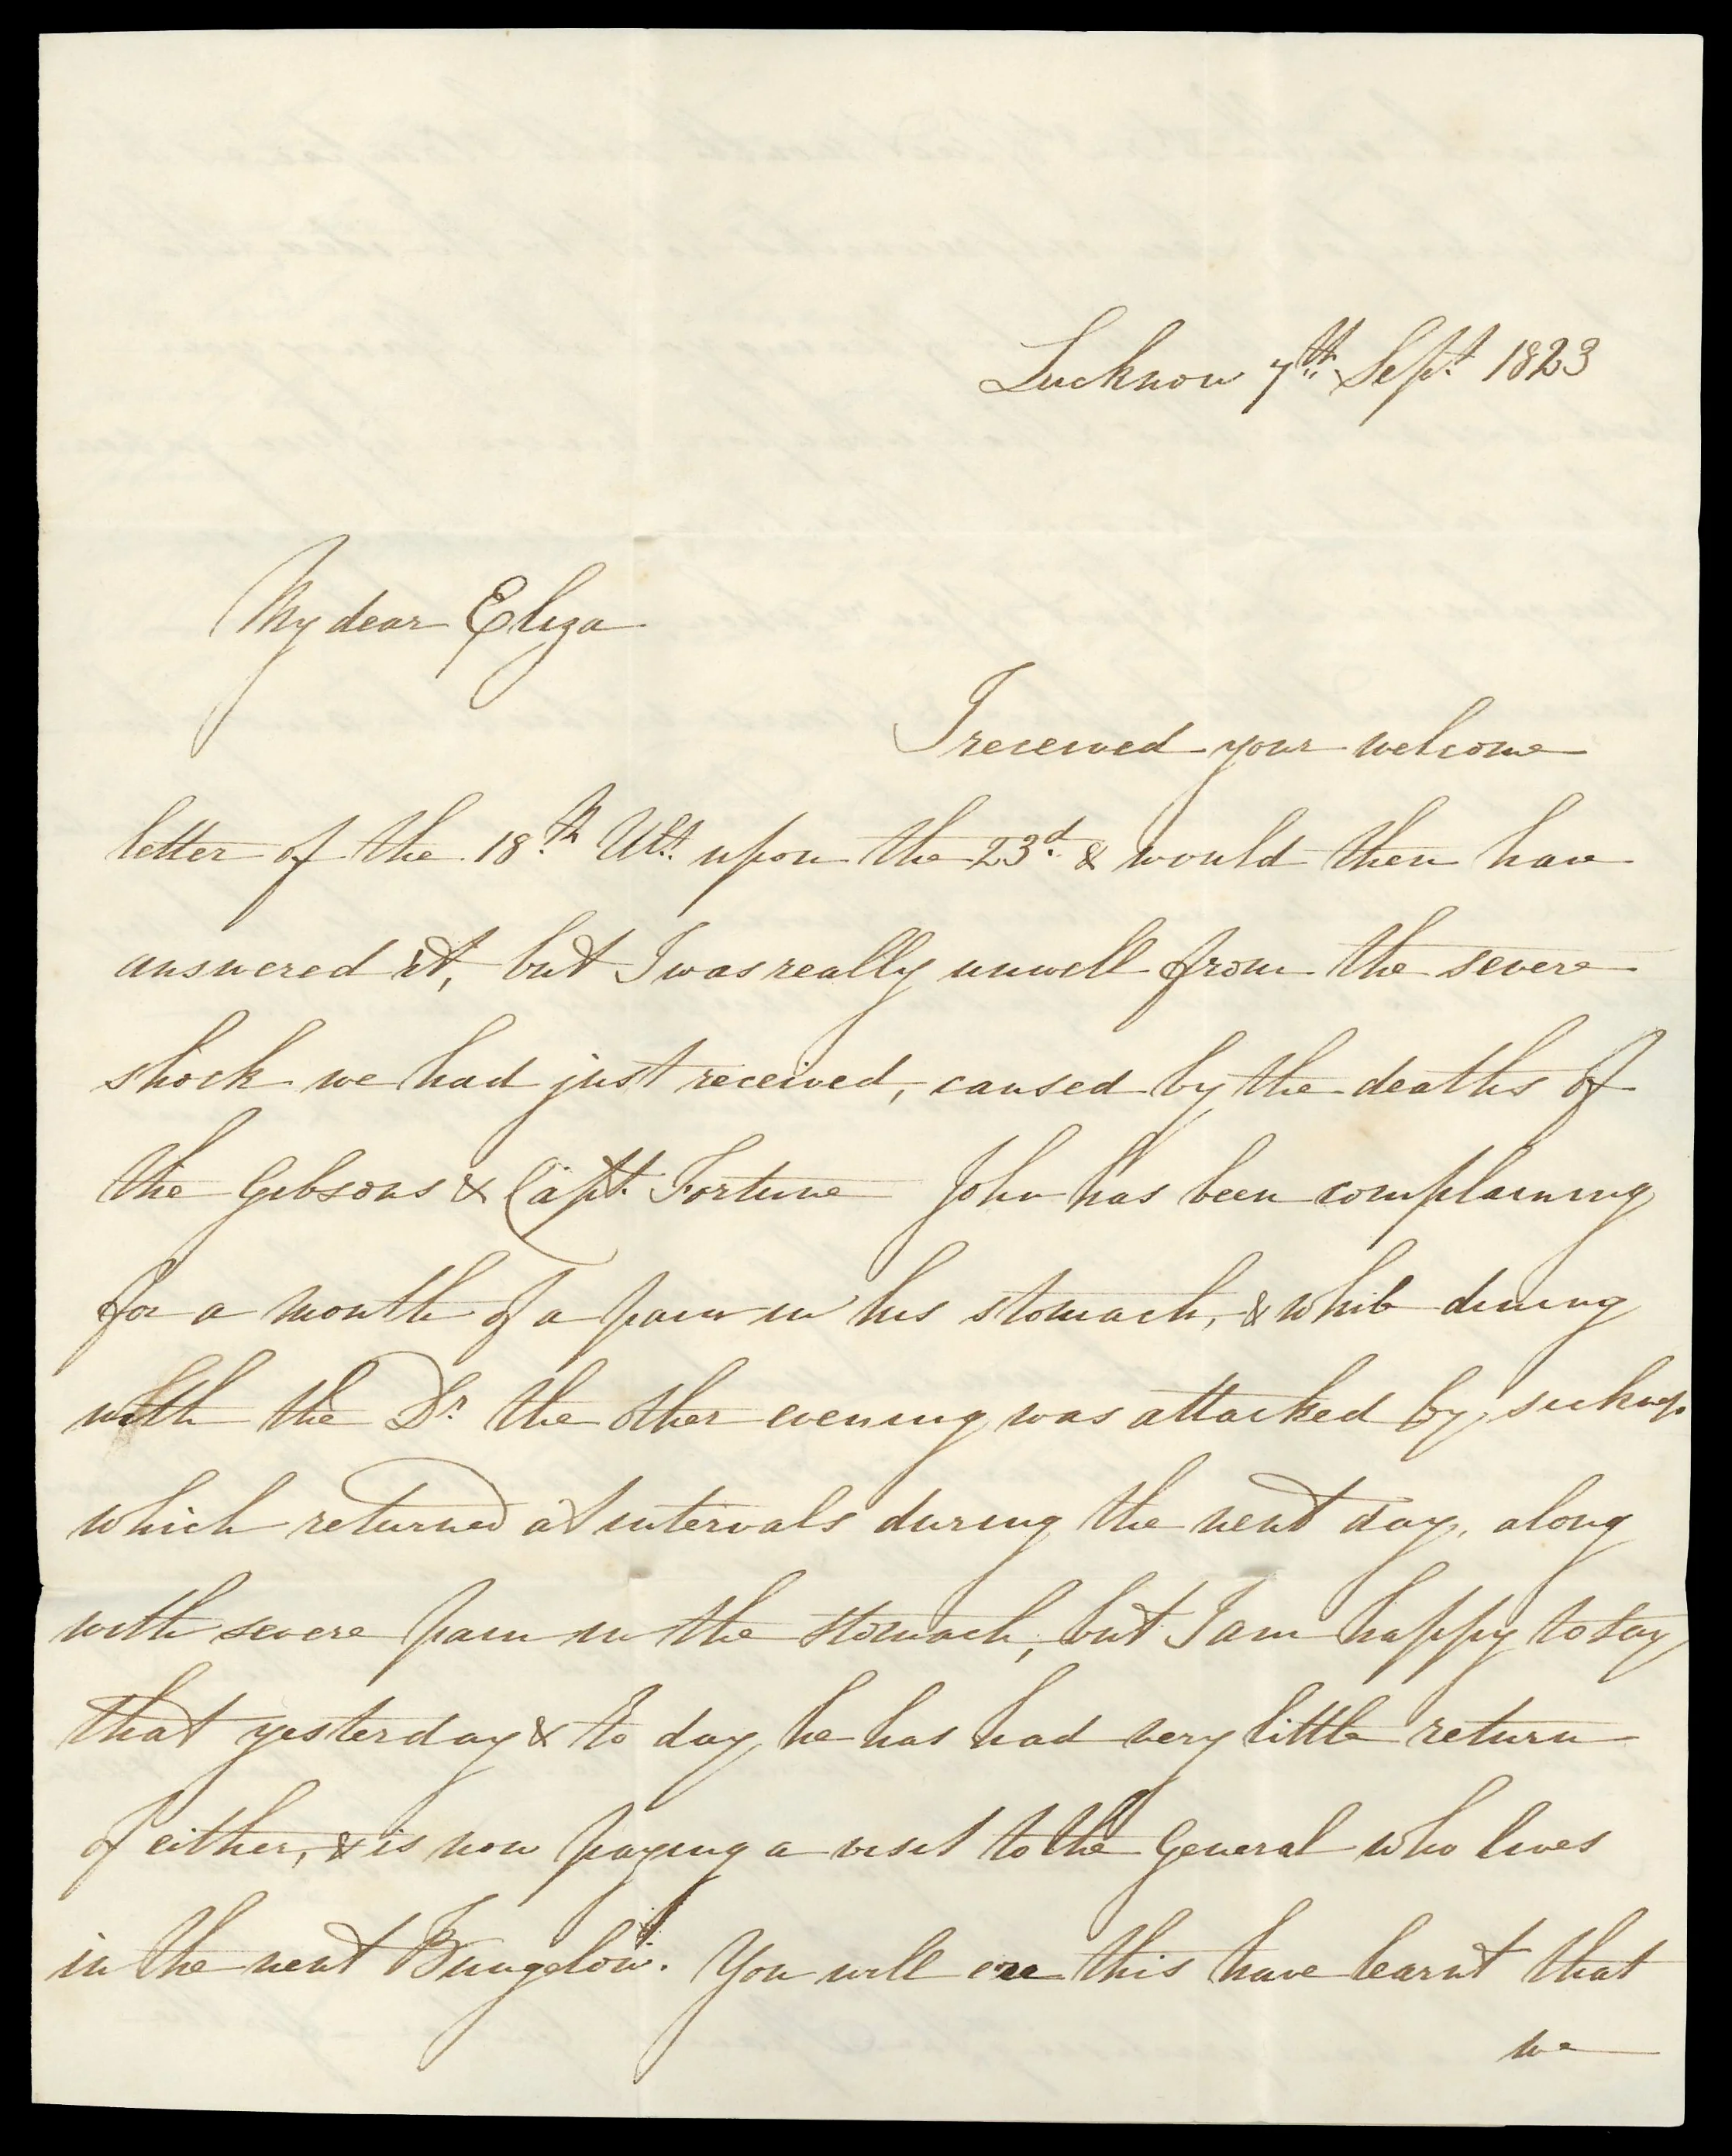 Lucknow 7th Sept. 1823
My dear Eliza
I received your welcome
letter of the 18th Ult. upon the 23d. & would then have
answered it, but I was really unwell from the severe
shock we had just received, caused by the deaths of
the Gibsons & Capt. Fortune John has been complaining
for a month of a pain in his stomach, & while dining
with the Dr. the other evening was attacked by sickness
which returned at intervals during the next day, along
with severe pain in the stomach, but I am happy to say
that yesterday & to day he has had very little return
of either, & is now paying a visit to the General who lives
in the next Bungelow. You will ere this have learnt that
we